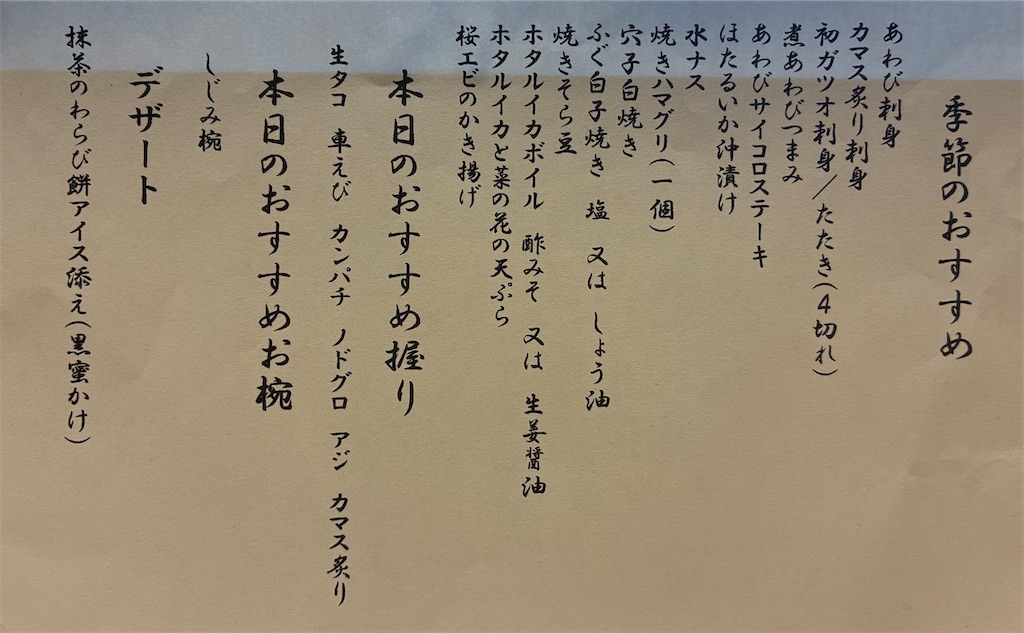 季節のおすすめ
あわび刺身
カマス炙り刺身
初ガツオ刺身／たたき(４切れ)
煮あわびつまみ
あわびサイコロステーキ
ほたるいか沖漬け
水ナス
焼きハマグリ(一個)
穴子白焼き
ふぐ白子焼き　塩　又は　しょう油
焼きそら豆
ホタルイカボイル　酢みそ　又は　生姜醤油
ホタルイカと菜の花の天ぷら
桜エビのかき揚げ
本日のおすすめ握り
生タコ　車えび　カンパチ　ノドグロ　アジ　カマス炙り
本日のおすすめお椀
しじみ椀
デザート
抹茶のわらび餅アイス添え(黒蜜かけ)